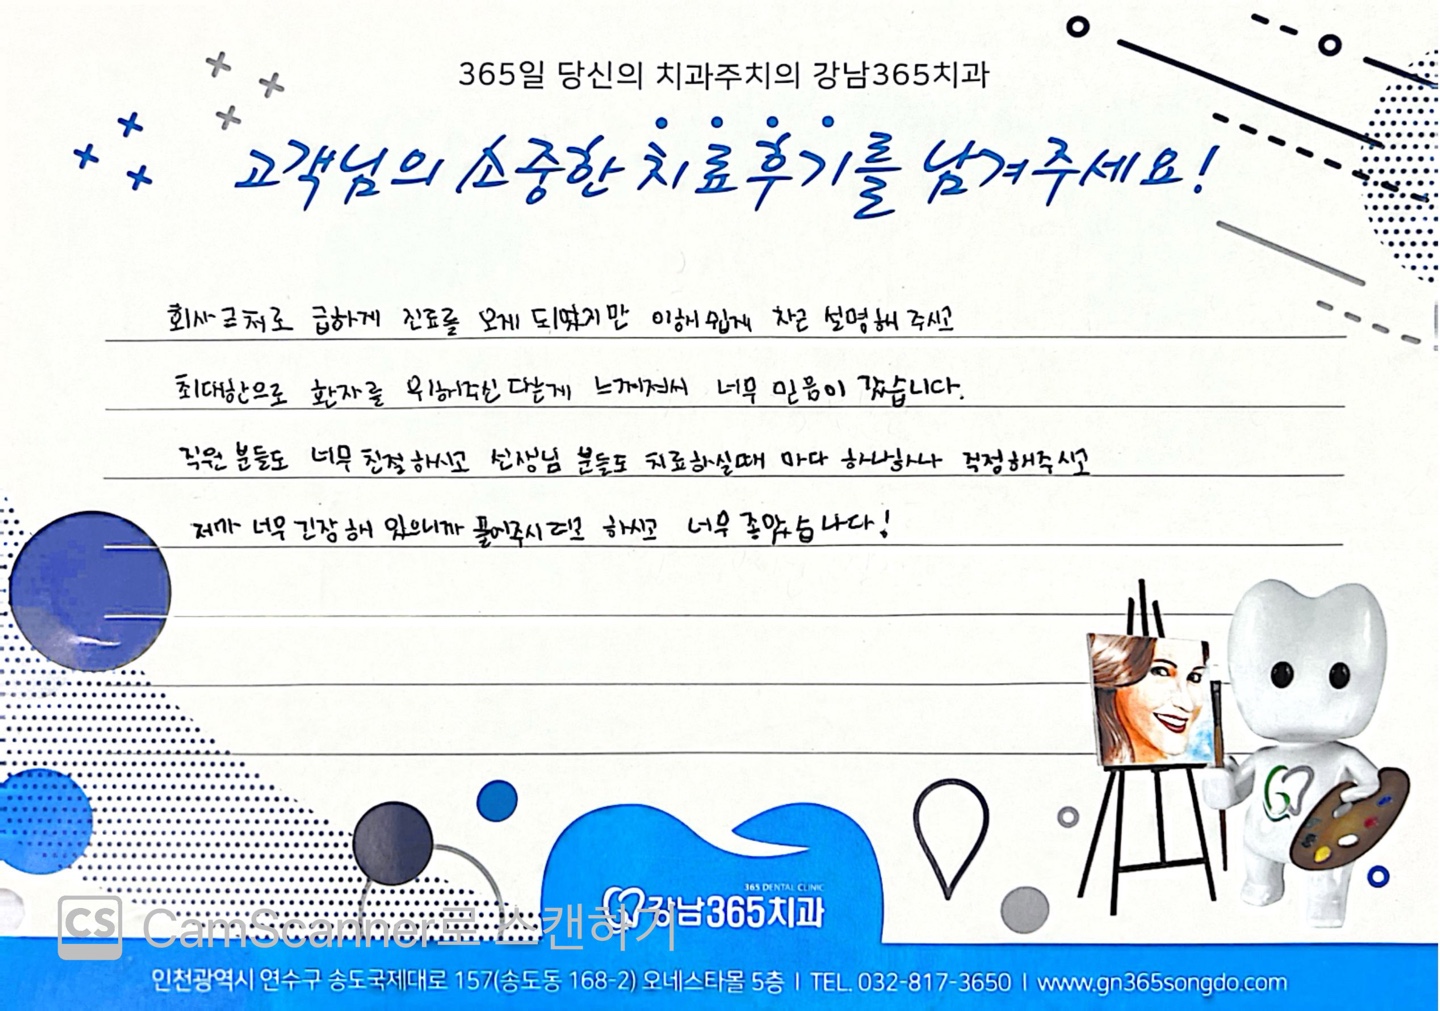 365일 당신의 치과주치의 강남365치과
고객님의 소중한 치료후기를 남겨주세요!
회사 근처로 급하게 진료를 오게 되었지만 이해 쉽게 차근 설명해 주시고
최대한으로 환자를 위해주신다는게 느껴져서 너무 믿음이 갔습니다.
직원 분들도 너무 친절하시고 선생님 분들도 치료하실때 마다 하나하나 걱정해주시고
제가 너무 긴장해 있으니까 풀어주시려고 하시고 너무 좋았습니다!
365 DENTAL CLINIC
강남365치과
CS CamScanner로 스캔하기
인천광역시 연수구 송도국제대로 157(송도동 168-2) 오네스타몰 5층 | TEL. 032-817-3650 | www.gn365songdo.com